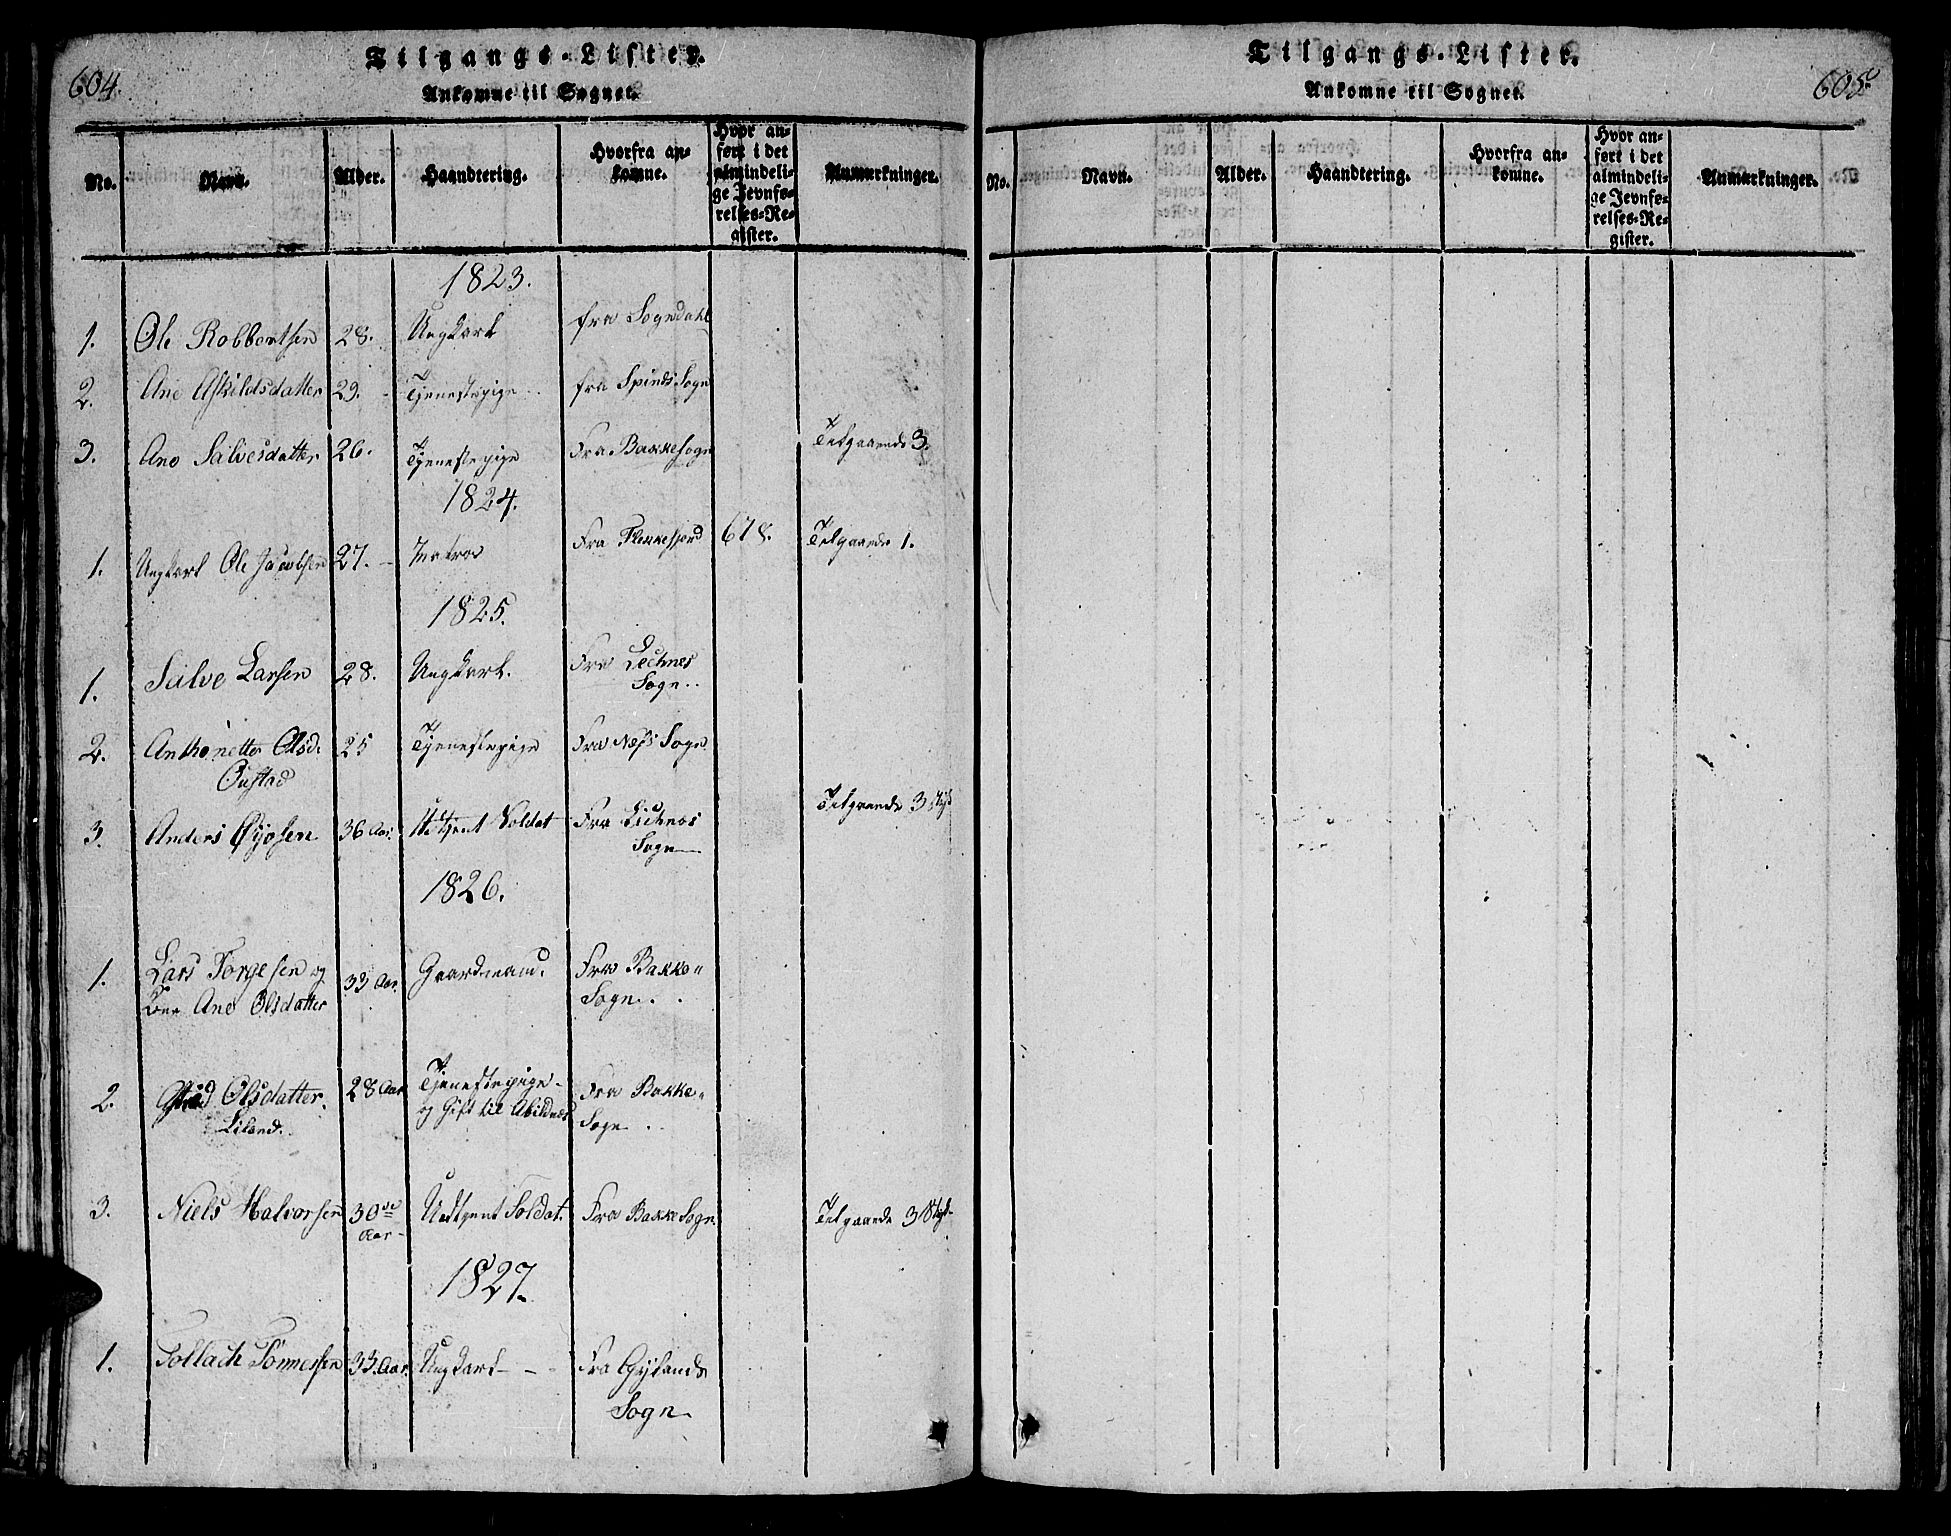 604.
Tilgangs-Lister.
Ankomne til Sognet.
No. Navn. Alder. Haandtering. Hvorfra an-
komne. Hvor an-
ført i det
almindeli-
ge Jevnfø-
relses-Re-
gister. Anmærkninger.
1823.
1. Ole Robbertsen 28. Ungkarl fra Sogndahl
2. Ane Askildsdatter 29. Tjenestepige fra Spinds Sogn
3. Ane Salvesdatter 26. Tjenestepige Fra Bakke Sogn Tilgaaende 3.
1824.
1. Ungkarl Ole Jacobsen 27. Matros Fra Flekkefjord 678. Tilgaaende 1.
1825.
1. Salve Larsen 28. Ungkarl. Fra
Sogn.
2. Anthonette Olsd. 25 Tjenestepige Fra Næss Sogn.
3. Anders 36 Aar. Udtjent Soldat Fra
Sogn Tilgaaende 3 Stk
1826.
1. Lars Torgesen og
Kone Ane Olsdatter 33 Aar. Gaardmand. Fra Bakke
Sogn.
2. Olsdatter
Liland. 28 Aar Tjenestepige
og Gift til Abildnæs Fra Bakke
Sogn
3. Niels Halvorsen 30de
Aar Udtjent Soldat. Fra Bakke Sogn. Tilgaaende 3 Stk.
1827.
1. Tollach Tønnessen 33 Aar. Ungkarl Fra Gylands
Sogn
Tilgangs-Lister.
605.
Ankomne til Sognet.
No. Navn. Alder. Haandtering. Hvorfra an-
komne. Hvor an-
ført i det
almindeli-
ge Jevnfø-
relses-Re-
gister. Anmærkninger.